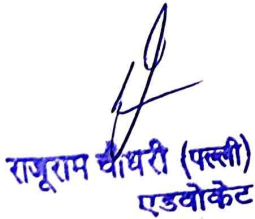 राजूराम चौधरी (पल्ली)
एडवोकेट